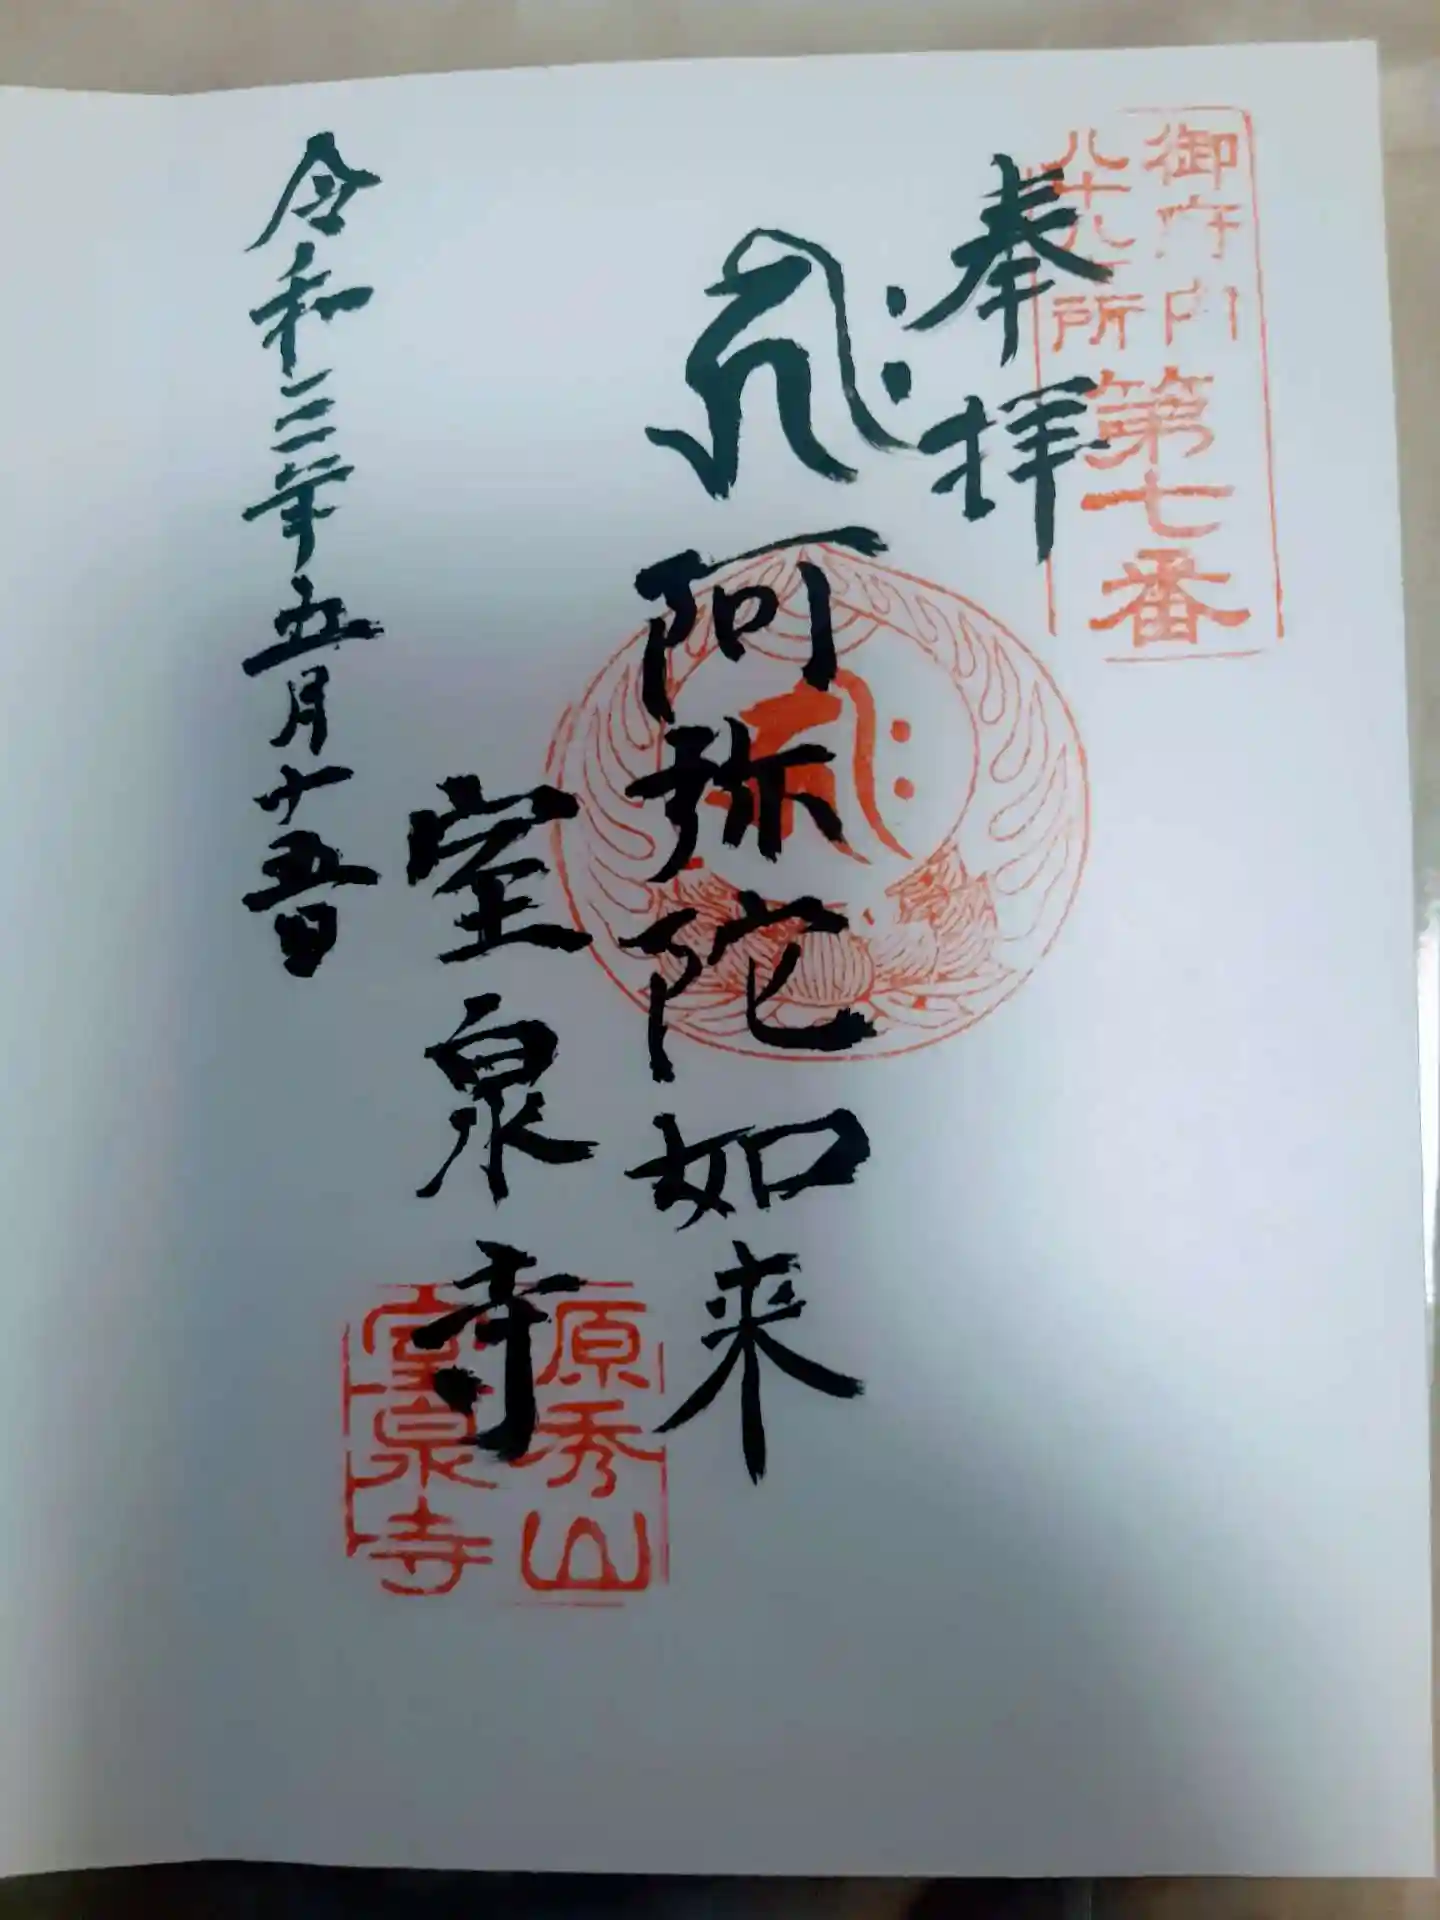 御府内
八十八所
第七番
奉拝
𑖮𑖿𑖨𑖱𑖾
阿弥陀如来
𑖮𑖿𑖨𑖱𑖾
室泉寺
原秀山
室泉寺
令和三年五月十五日